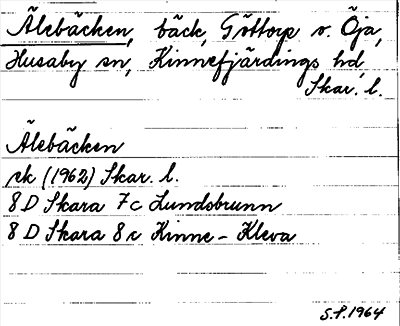 Älebäcken, bäck, Göttorp o. Öja,
Husaby sn, Kinnefjärdings hd,
Skar. l.
Älebäcken
ek (1962) Skar. l.
8 D Skara 7c Lundsbrunn
8 D Skara 8c Kinne-Kleva
S.P. 1964